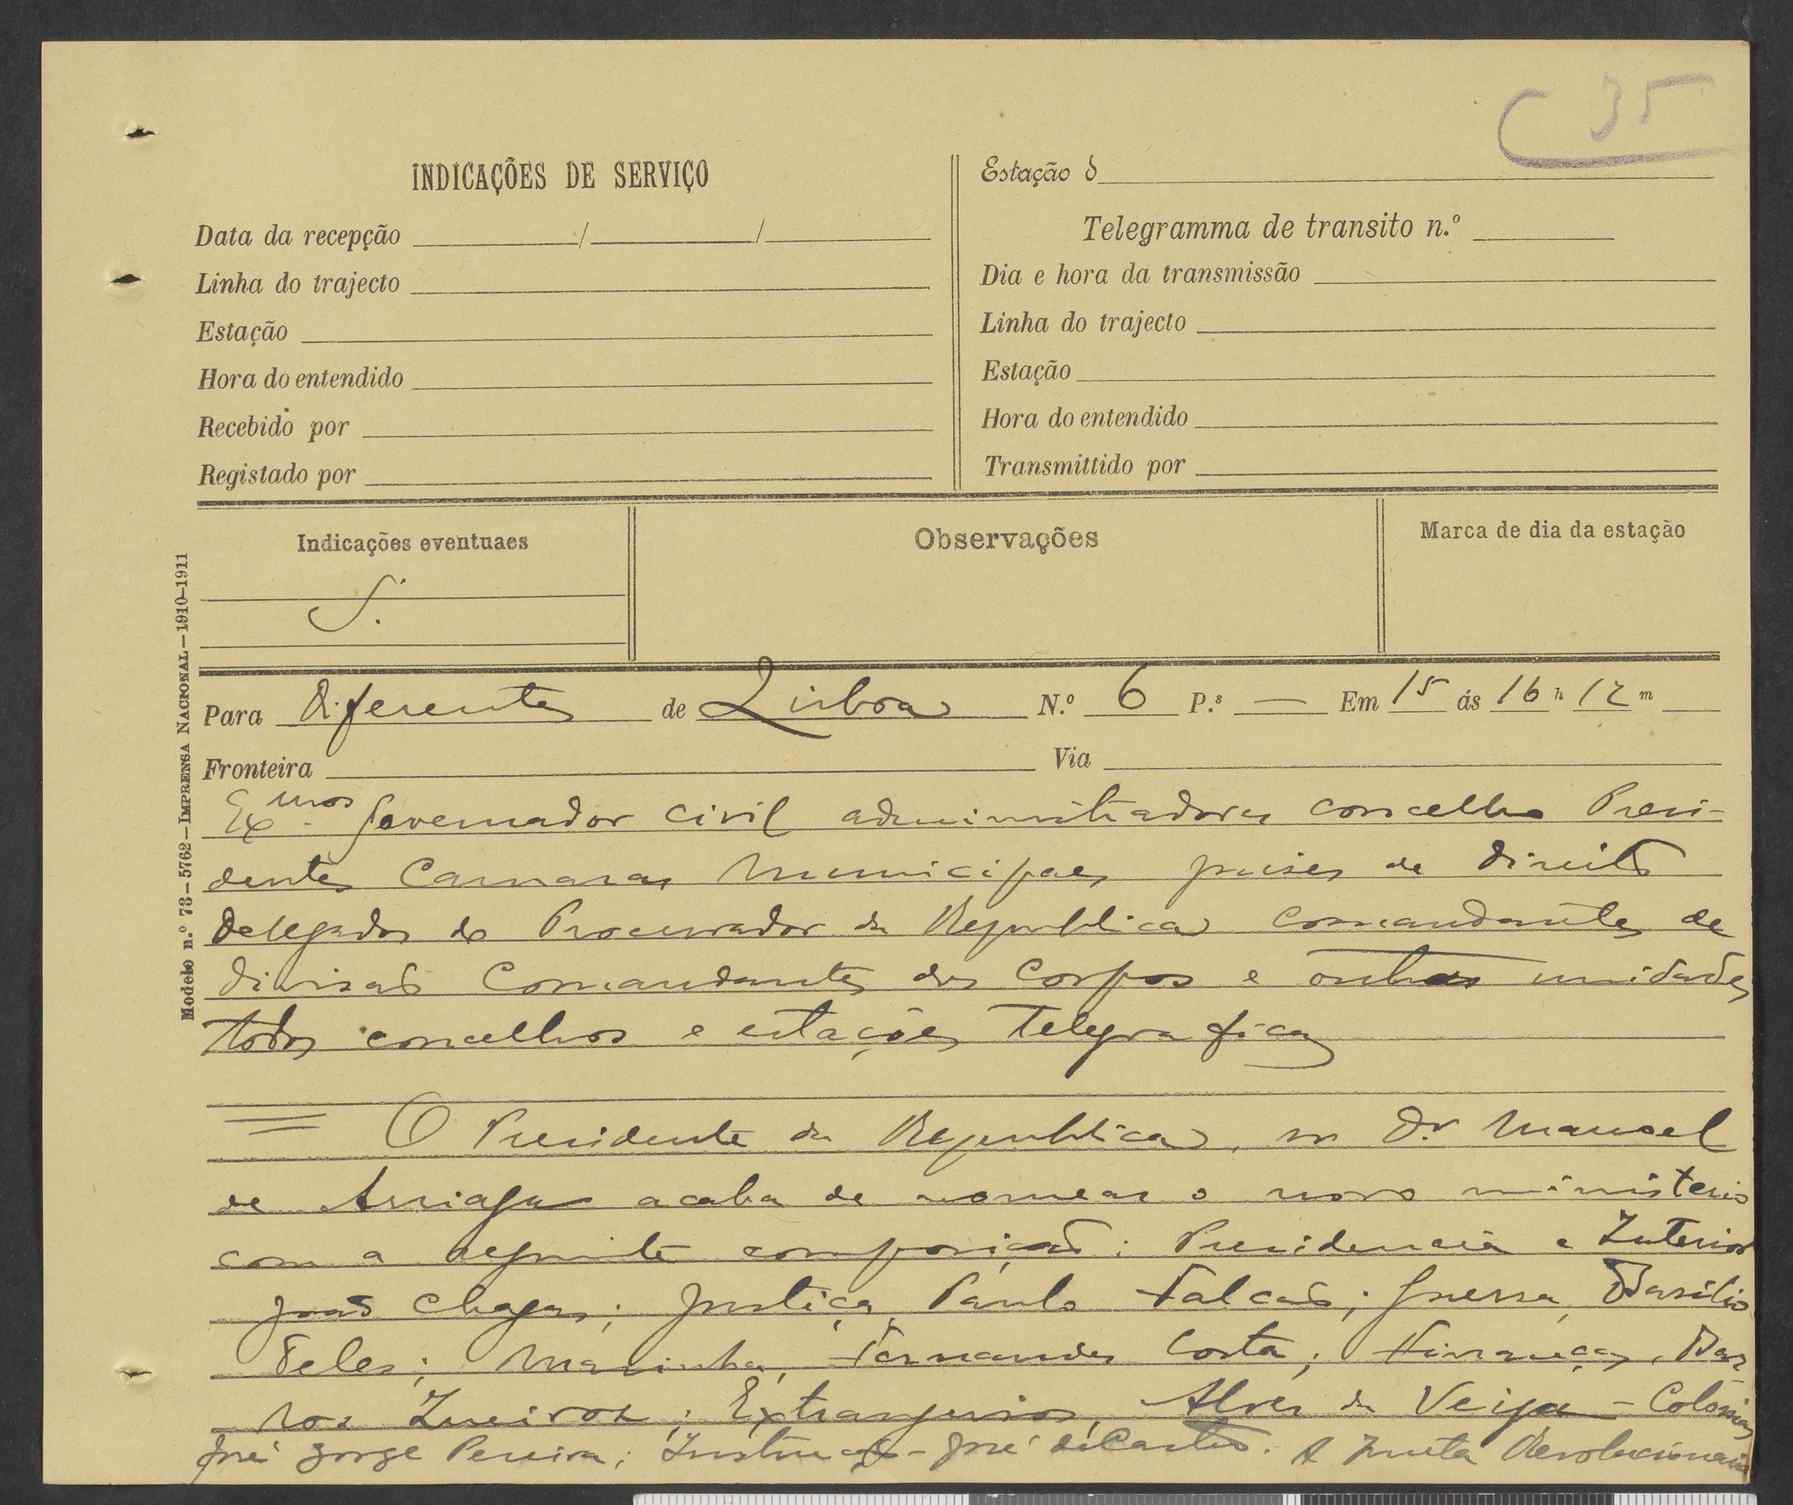 C 35
INDICAÇÕES DE SERVIÇO
Data da recepção / /
Linha do trajecto
Estação
Hora do entendido
Recebido por
Registado por
Estação d
Telegramma de transito n.º
Dia e hora da transmissão
Linha do trajecto
Estação
Hora do entendido
Transmittido por
Indicações eventuaes
S.
Observações
Marca de dia da estação
Modelo n.º 73—5762—IMPRENSA NACIONAL—1910-1911
Para Diferentes de Lisboa N.º 6 P.s — Em 15 ás 16 h 12 m
Fronteira Via
Exmos Governador civil administradores concelho Presi-
dentes Camaras Municipaes juises de direito
Delegados do Procurador da Republica comandantes de
divisão Comandantes dos corpos e outras unidades
todos concelhos e estações telegraficas
= O Presidente da Republica, sr Dr Manoel
de Arriaga acaba de nomear o novo ministerio
com a seguinte composição: Presidencia e Interior
João Chagas; Justiça, Paulo Falcão; Guerra, Basilio
Teles; Marinha, Fernandes Costa; Finanças, Bar
ros Queiroz; Extrangeiros, Alves da Veiga – Colonias
José Jorge Pereira; Instrucção – José de Castro. A Junta Revolucionaria